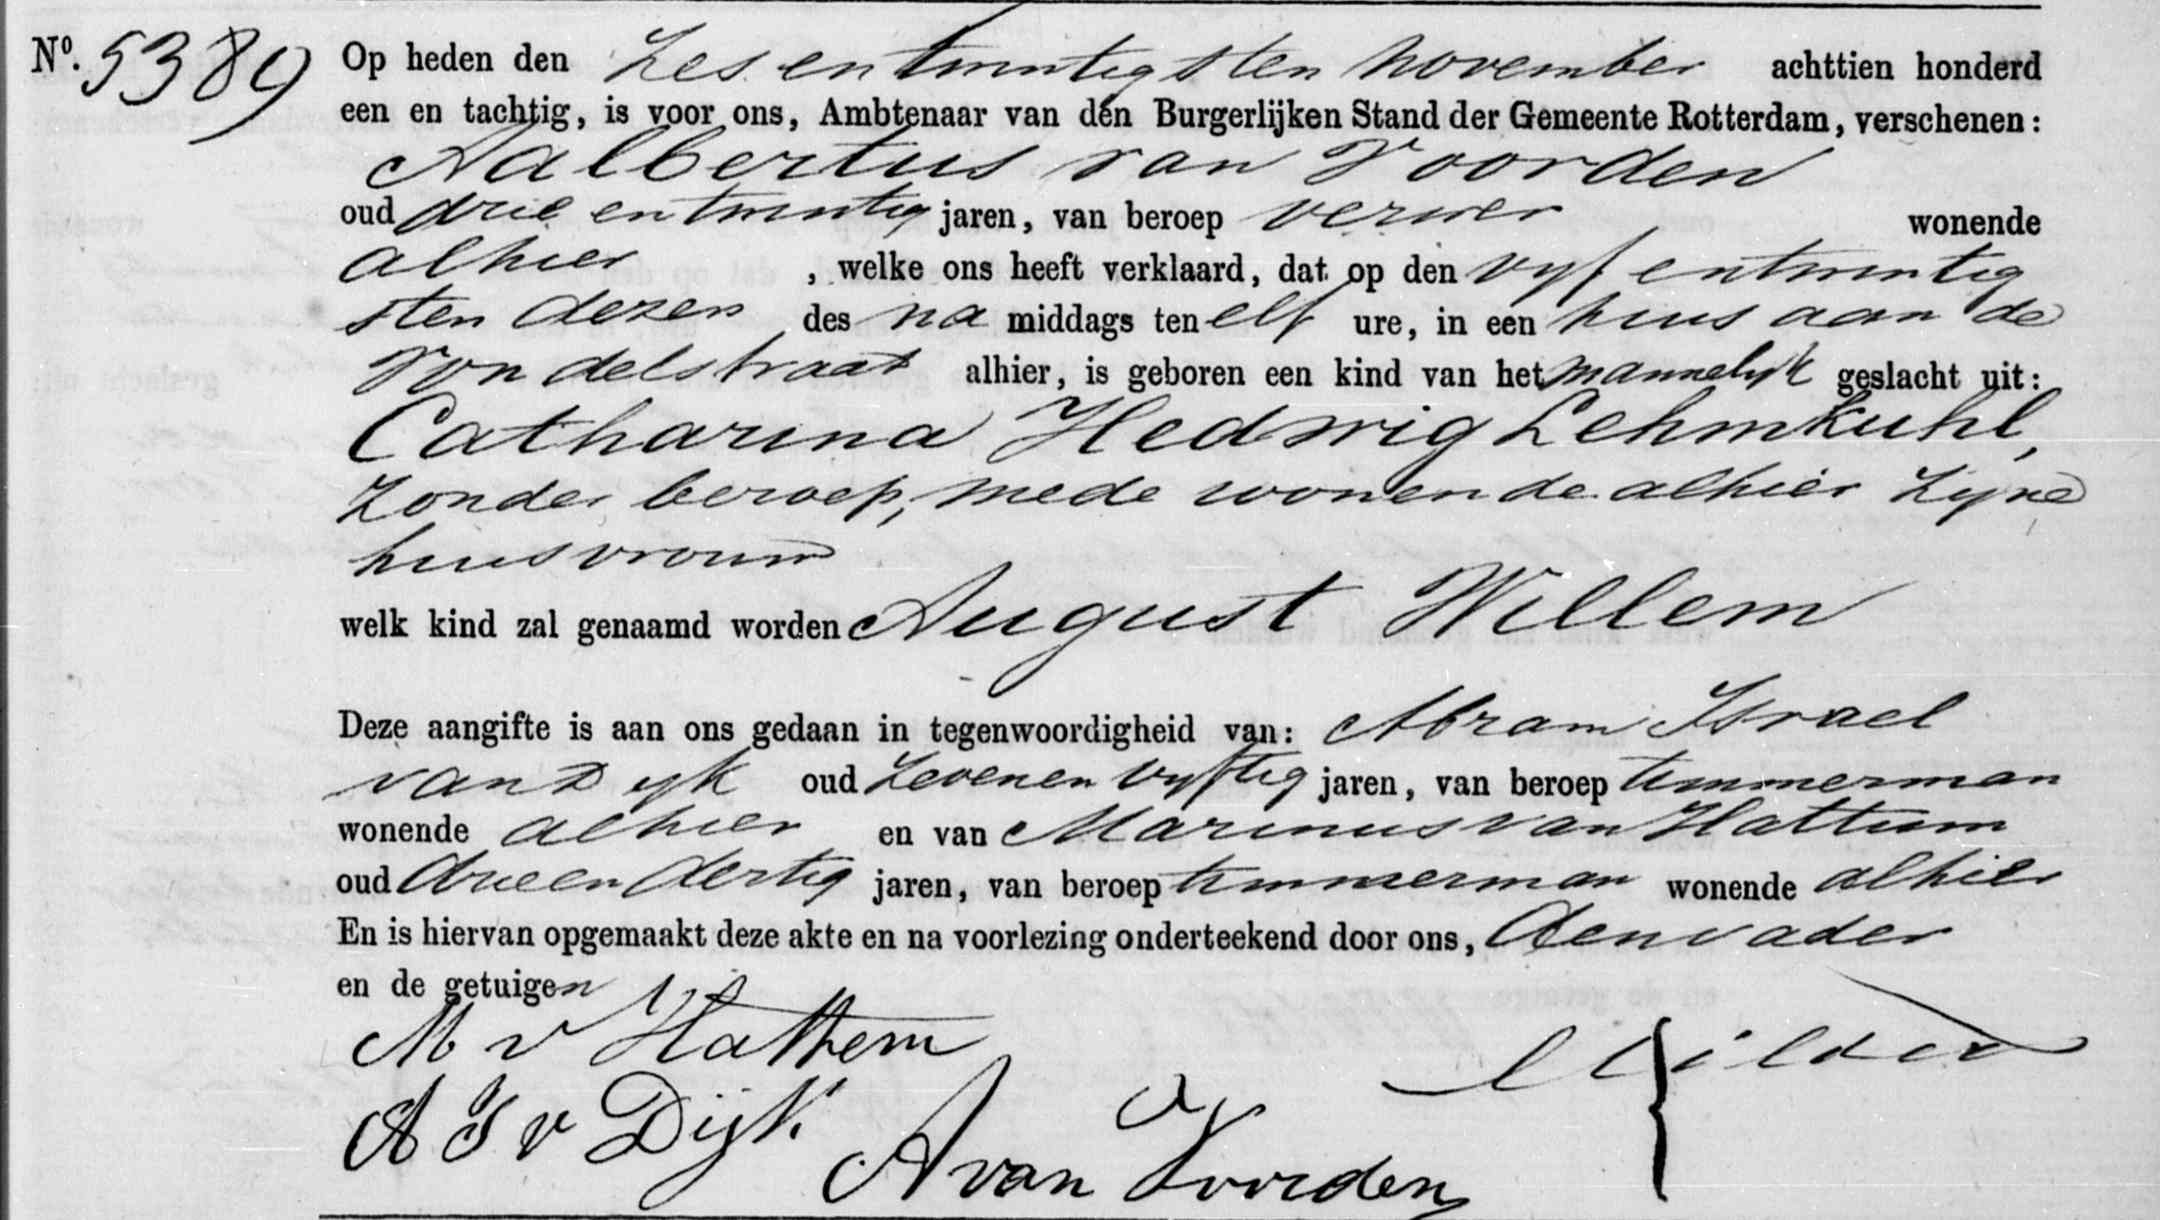 No. 5389 Op heden den Zes en twintigsten November achttien honderd
een en tachtig, is voor ons, Ambtenaar van den Burgerlijken Stand der Gemeente Rotterdam, verschenen:
Aalbertus van Voorden
oud drie en twintig jaren, van beroep verwer wonende
alhier, welke ons heeft verklaard, dat op den vyf entwintig
sten dezer des na middags ten elf ure, in een huis aan de
Vondelstraat alhier, is geboren een kind van het mannelyk geslacht uit:
Catharina Hedwig Lehmkuhl,
Zonder beroep, mede wonende alhier Zyne
huisvrouw
welk kind zal genaamd worden August Willem
Deze aangifte is aan ons gedaan in tegenwoordigheid van: Abram Israel
van Dyk oud Zevenen vyftig jaren, van beroep timmerman
wonende alhier en van Marinus van Hattum
oud drieen dertig jaren, van beroep timmerman wonende alhier
En is hiervan opgemaakt deze akte en na voorlezing onderteekend door ons, den vader
en de getuigen
M v Hattem
A I v Dijk
A van Voorden